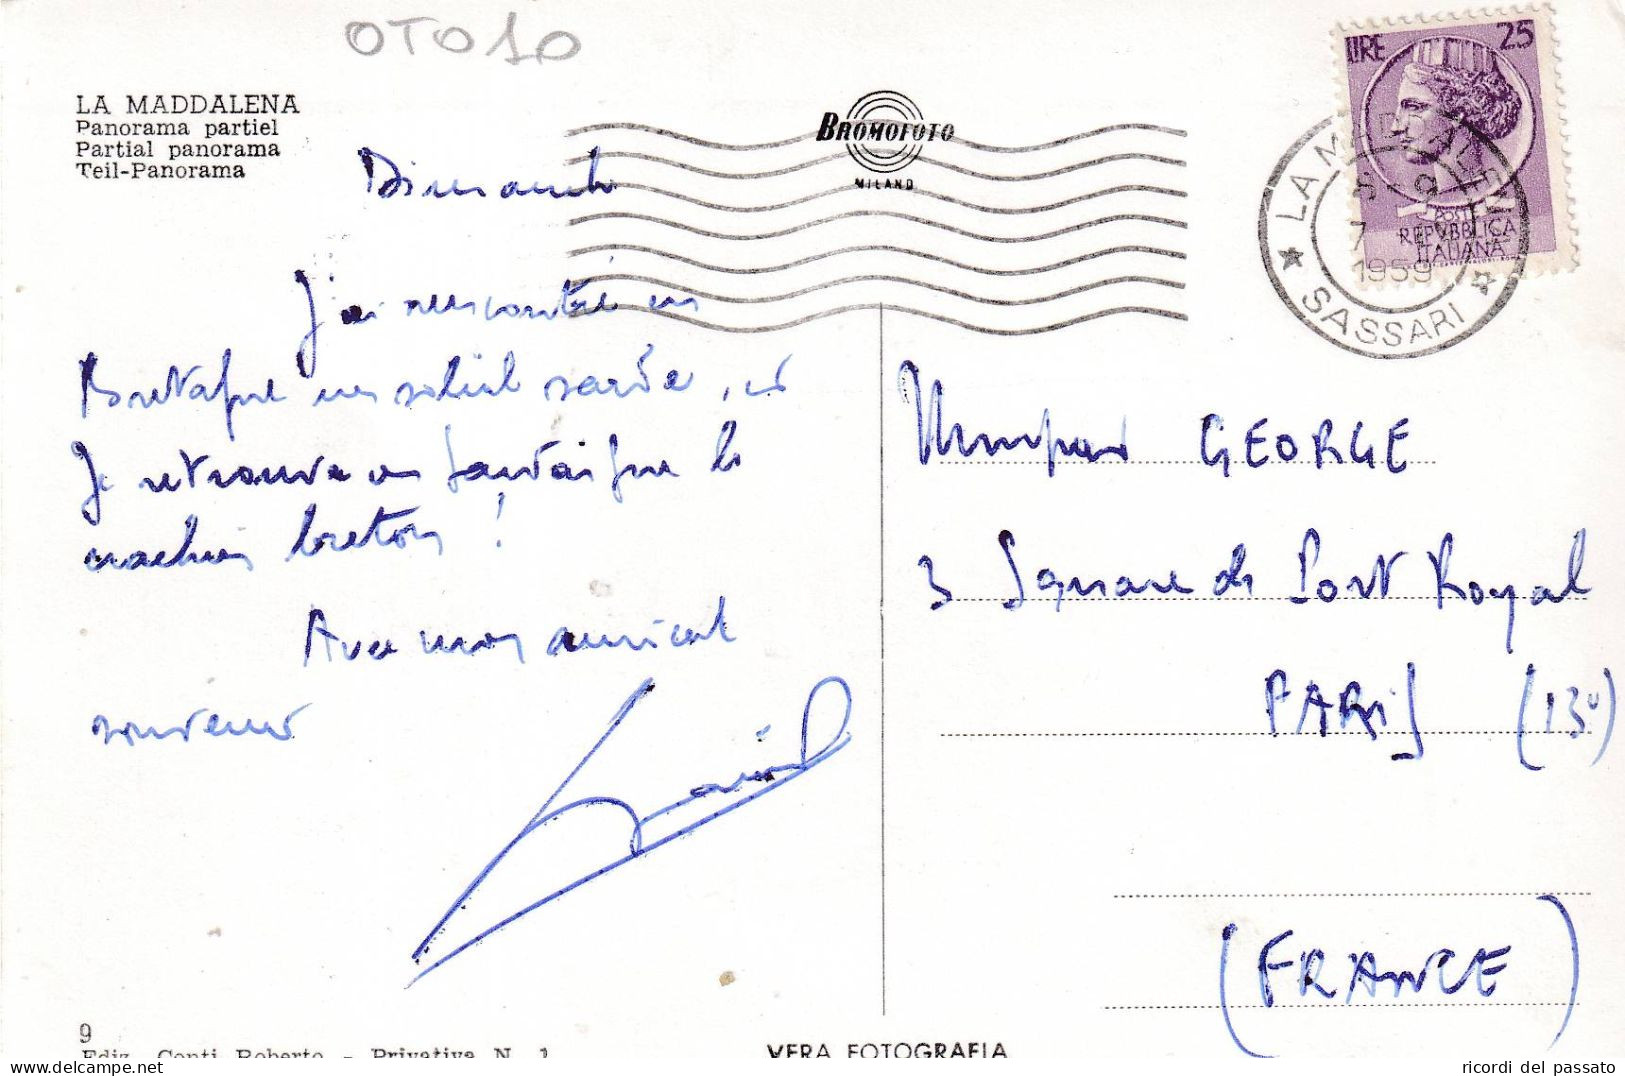 OTO10
LA MADDALENA
Panorama partiel
Partial panorama
Teil-Panorama
BROMOFOTO
MILANO
LIRE 25
POSTE
REPVBBLICA
ITALIANA
LA MADDALENA
8-9
7
1959
* SASSARI *
Dimanche
J'ai rencontré en
Bretagne un soleil sarde, et
Je retrouve en Sardaigne le
crachin breton !
Avec mon amical
souvenir
Monsieur GEORGE
3 Square de Port Royal
PARIS (13e)
(FRANCE)
9
Ediz. Conti Roberto - Privativa N. 1
VERA FOTOGRAFIA
ricordi del passato